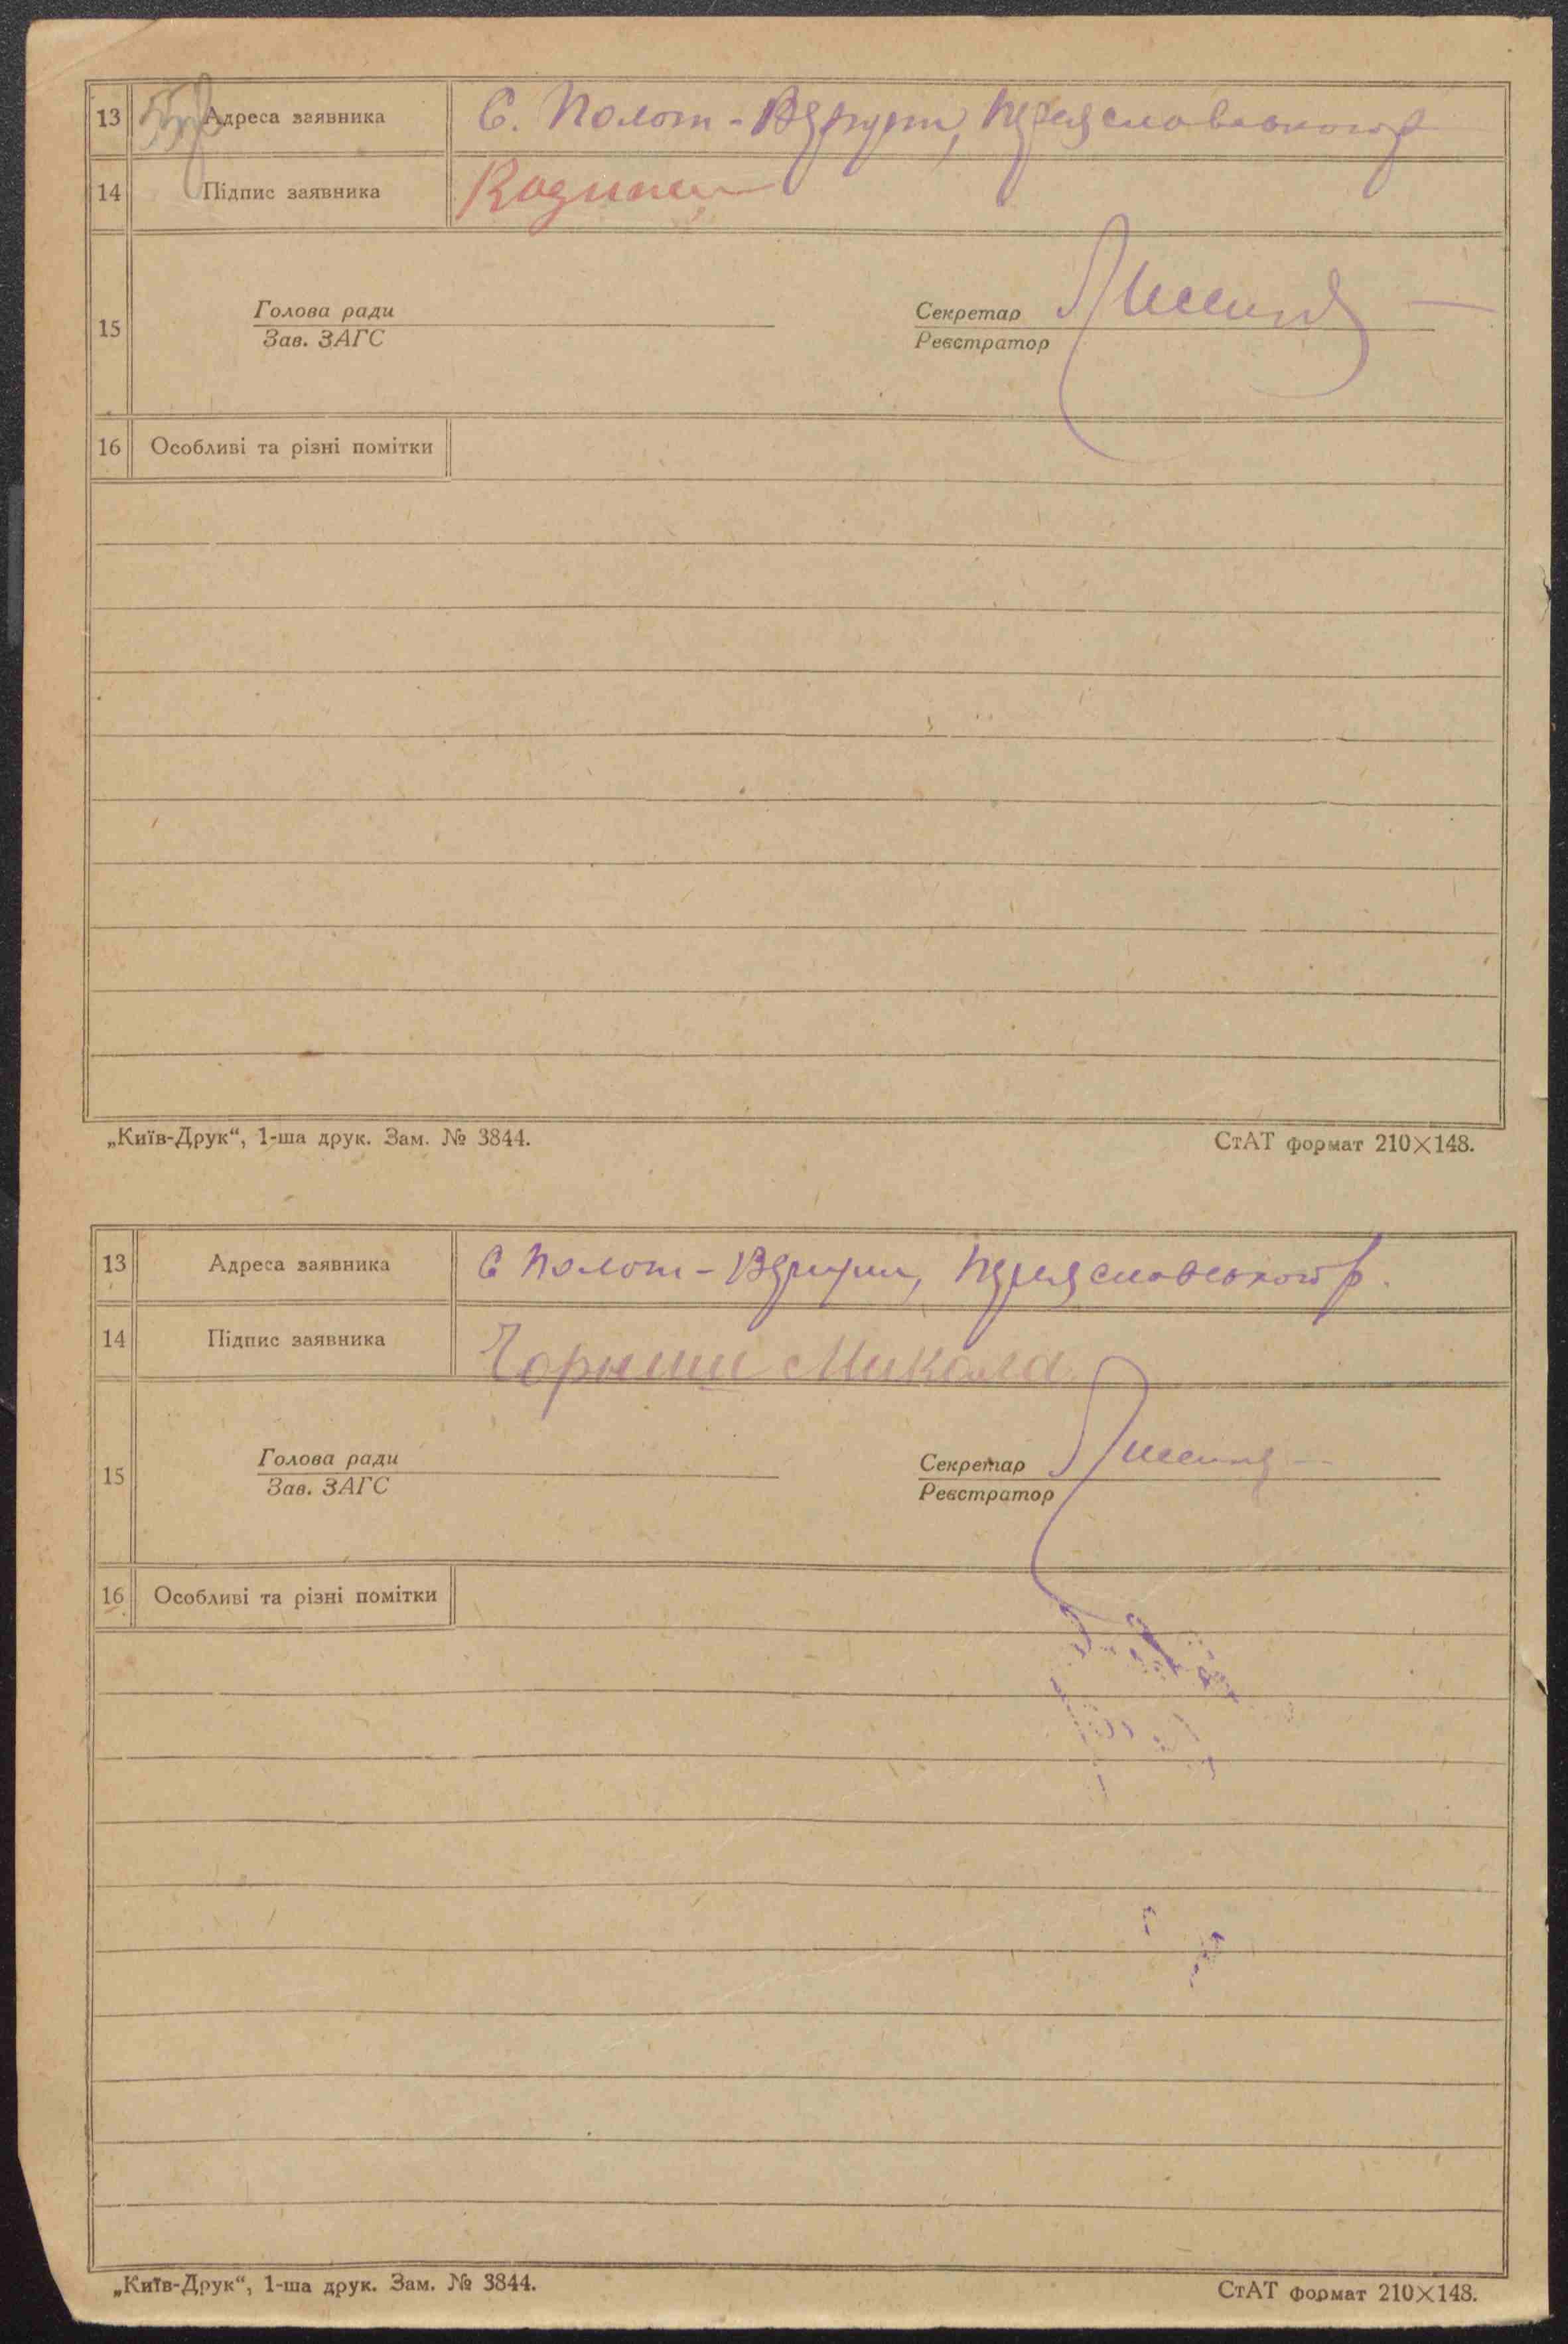 13 Адреса заявника С. Полот-Вергуни, Переяславського р
14 Підпис заявника
15 Голова ради Секретар
Зав. ЗАГС Реєстратор
16 Особливі та різні помітки
„Київ-Друк“, 1-ша друк. Зам. № 3844. СтАТ формат 210×148.
13 Адреса заявника С Полот-Вергуни, Переяславського р.
14 Підпис заявника Горниш Микола
15 Голова ради Секретар
Зав. ЗАГС Реєстратор
16 Особливі та різні помітки
„Київ-Друк“, 1-ша друк. Зам. № 3844. СтАТ формат 210×148.